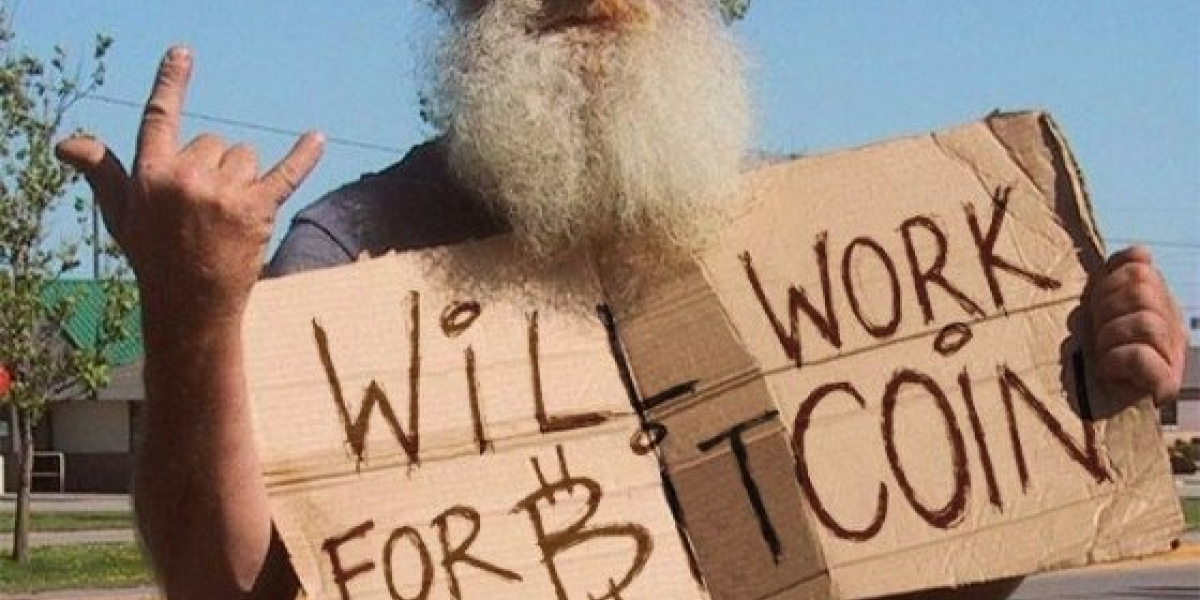 WiLL WORK
FOR ₿iTCOiN